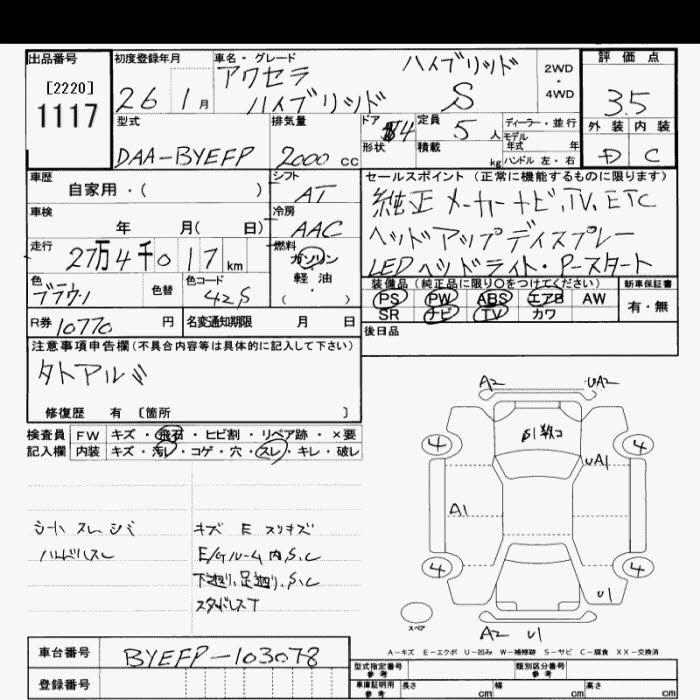 出品番号
[2220]
1117
初度登録年月
26 1月
車名・グレード
アクセラ ハイブリッド
ハイブリッド S
2WD
・
4WD
評価点
3.5
外装 内装
D C
型式
DAA-BYEFP
排気量
2000 cc
ドア 4
形状
定員 5 人
積載 kg
ディーラー・並行
モデル
年式 年
ハンドル 左・右
車歴
自家用・( )
シフト
AT
車検
年 月( 日)
冷房
AAC
走行
27万4千017km
燃料
ガソリン
・
軽油
・
( )
色
ブラウン
色替
色コード
42S
R券 10770 円
名変通知期限 月 日
セールスポイント (正常に機能するものに限ります)
純正メーカーナビ、TV、ETC
ヘッドアップディスプレー
LEDヘッドライト・Pースタート
装備品(純正品に限り○をつけてください)
PS PW ABS エアB AW
SR ナビ TV カワ
新車保証書
有・無
後日品
注意事項申告欄(不具合内容等は具体的に記入して下さい)
修復歴 有 [箇所 ]
検査員 FW キズ・飛石・ヒビ割・リペア跡・×要
記入欄 内装 キズ・汚レ・コゲ・穴・スレ・キレ・破レ
シート スレ シミ
ハンドルスレ
キズ E スリキズ
E/Gルーム内、S.C
下廻り、足廻り、S.C
スタッドレスT
A2 UA2
4 4
UA1
A1
4 4
U1
スペア
A2 U1
A-キズ E-エクボ U-凹み W-補修跡 S-サビ C-腐食 XX-交換済
車台番号 BYEFP-103078
登録番号
型式指定番号
参考
類別区分番号
参考
車庫証明用
参考
長さ cm 幅 cm 高さ cm